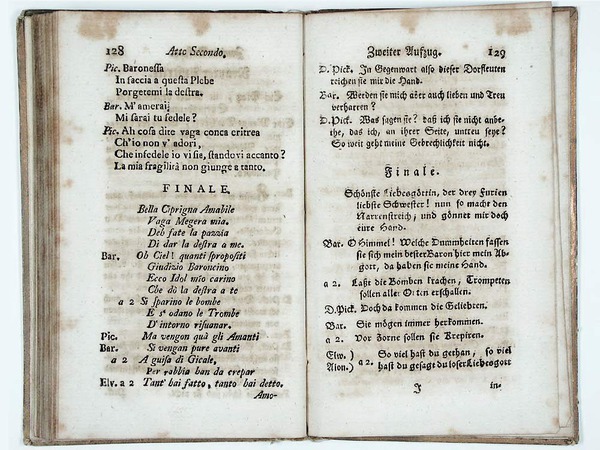 128 Atto Secondo.
Pic. Baronessa
In faccia a questa Plebe
Porgetemi la destra.
Bar. M'amerai;
Mi sarai tu fedele?
Pic. Ah cosa dite vaga conca eritrea
Ch'io non v' adori,
Che infedele io vi sia, standovi accanto?
La mia fragilità non giunge a tanto.
FINALE.
Bella Ciprigna Amabile
Vaga Megera mia.
Deh fate la pazzia
Di dar la destra a me.
Bar. Oh Ciel! quanti spropositi
Giudizio Baroncino
Ecco Idol mio carino
Che dò la destra a te
a 2 Si sparino le bombe
E s' odano le Trombe
D' intorno risuonar.
Pic. Ma vengon quà gli Amanti
Bar. Si vengan pure avanti
a 2 A guisa di Gicale,
Per rabbia han da crepar
Elv. a 2 Tant' hai fatto, tanto hai detto.
Amo-
Zweiter Aufzug. 129
D. Pick. In Gegenwart also dieser Dorfleuten
reichen sie mir die Hand.
Bar. Werden sie mich aber auch lieben und Treu
verharren?
D. Pick. Was sagen sie? daß ich sie nicht anbe-
the, das ich, an ihrer Seite, untreu seye?
So weit geht meine Gebrechlichkeit nicht.
Finale.
Schönste Liebesgöttin, der drey Furien
liebste Schwester! nun so macht den
Narrenstreich, und gönnet mir doch
eure Hand.
Bar. O Himmel! Welche Dummheiten fassen
sie sich mein bester Baron hier mein Ab-
gott, da haben sie meine Hand.
a 2. Laßt die Bomben krachen, Trompeten
sollen aller Orten erschallen.
D. Pick. Doch da kommen die Geliebten.
Bar. Sie mögen immer herkommen.
a 2. Vor Zorne sollen sie Krepiren.
Elw. ) So viel hast du gethan, so viel
Alon. ) a 2. hast du gesagt du loser Liebesgott
J in-